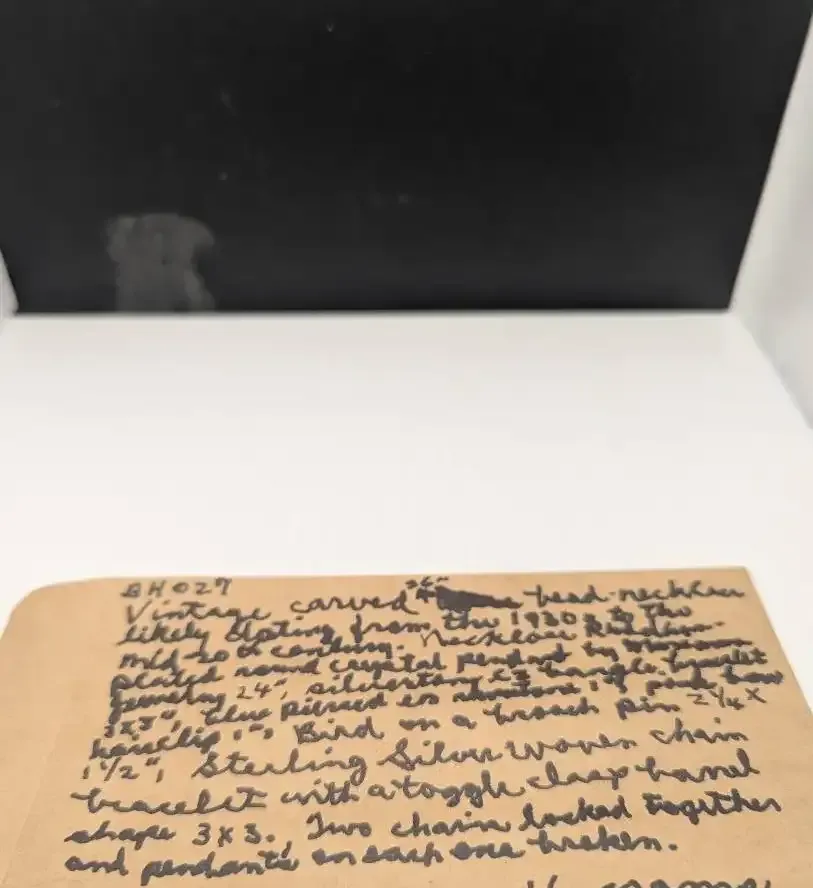 BH027
Vintage carved 26" bead necklace
likely dating from the 1930s to the
mid-20th century. Necklace
plated round crystal pendant by
Jewelry 24", silvertone bangle bracelet
3x3", blue pierced 1", pink bow
hairclip 1", Bird on a brooch pin 2 1/4 x
1 1/2", Sterling Silver woven chain
bracelet with a toggle clasp barrel
shape 3x3. Two chain locked together
and pendants on each one broken.